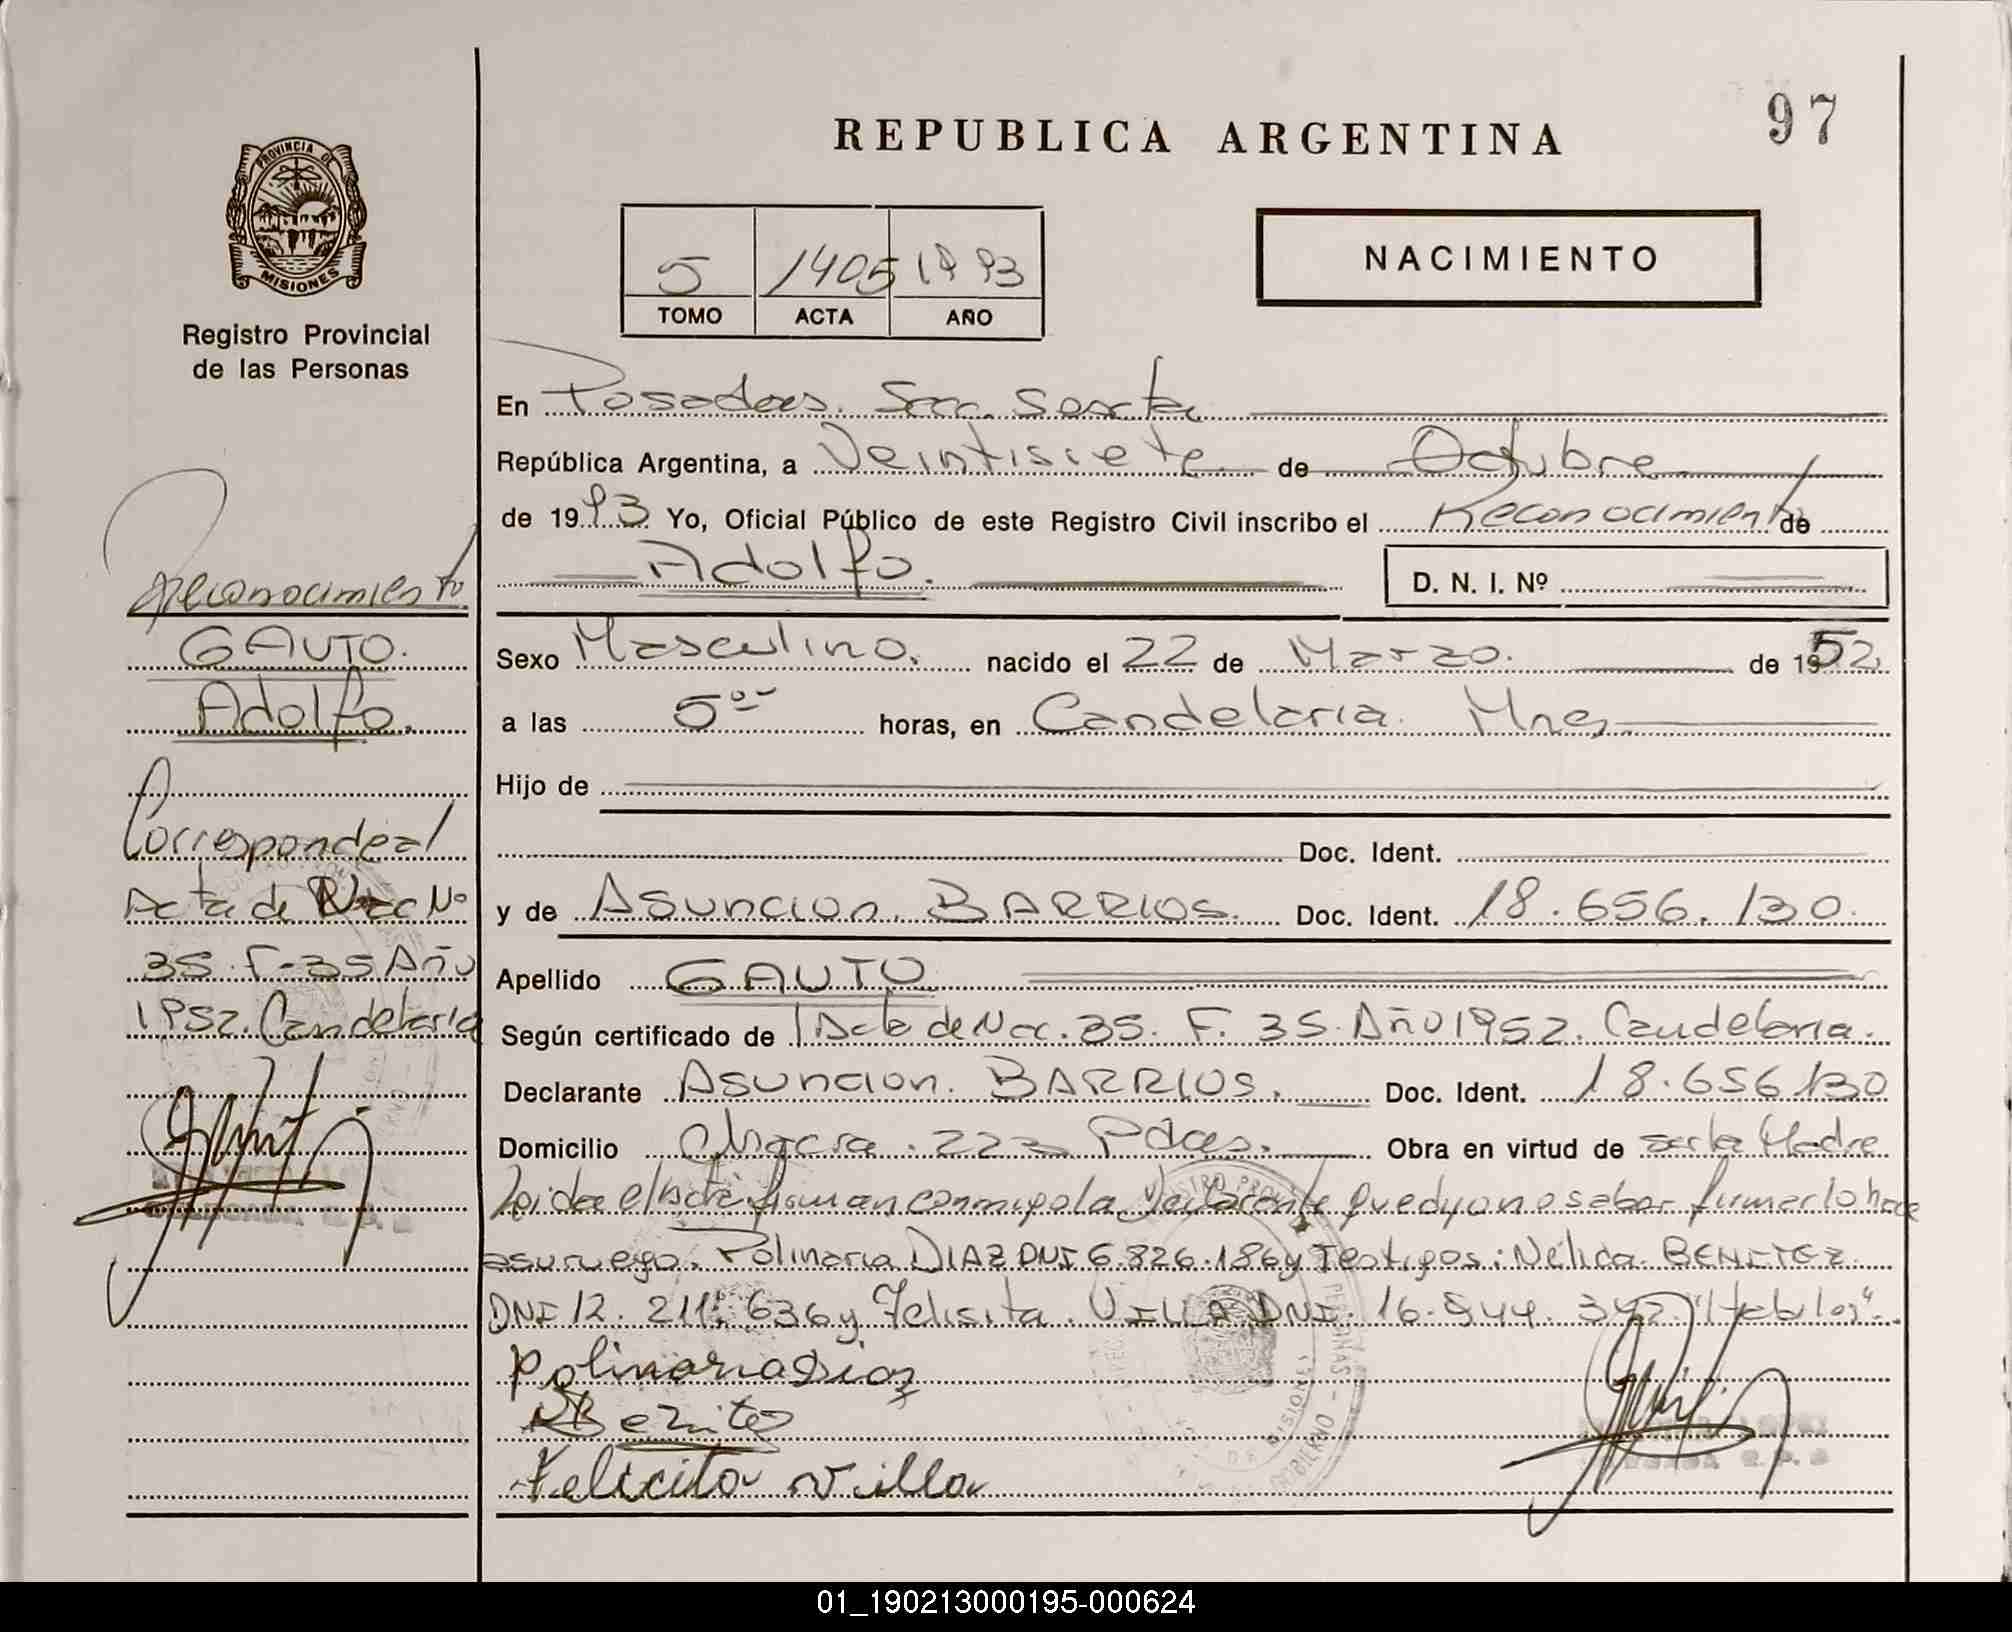 97
REPUBLICA ARGENTINA
PROVINCIA DE
MISIONES
Registro Provincial
de las Personas
NACIMIENTO
5 1405 1993
TOMO ACTA AÑO
En Posadas. Secc. Sexta
República Argentina, a Veintisiete de Octubre
de 1993 Yo, Oficial Público de este Registro Civil inscribo el Reconocimiento de
Adolfo. D. N. I. Nº
Sexo Masculino. nacido el 22 de Marzo. de 1952
a las 5 horas, en Candelaria. Mnes
Hijo de
Doc. Ident.
y de Asuncion. BARRIOS. Doc. Ident. 18.656.130.
Apellido GAUTO
Según certificado de Acta de Nac. 35. F. 35. Año 1952. Candelaria.
Declarante Asuncion. BARRIOS. Doc. Ident. 18.656130
Domicilio Chacra. 223 Pdas. Obra en virtud de ser la Madre
Leida el acta firman conmigo la Declarante que dijo no saber firmar lo hace
a su ruego. Polinaria DIAZ DNI 6.826.186 y Testigos: Nélida. BENITEZ
DNI 12. 211. 636 y Felisita. VILLA DNI. 16. 844. "Habiles".
Polinaria Diaz
Benitez
Felicita Villa
Reconocimiento
GAUTO.
Adolfo.
Corresponde al
Acta de Nac Nº
35. F-35 Año
1952. Candelaria
01_190213000195-000624